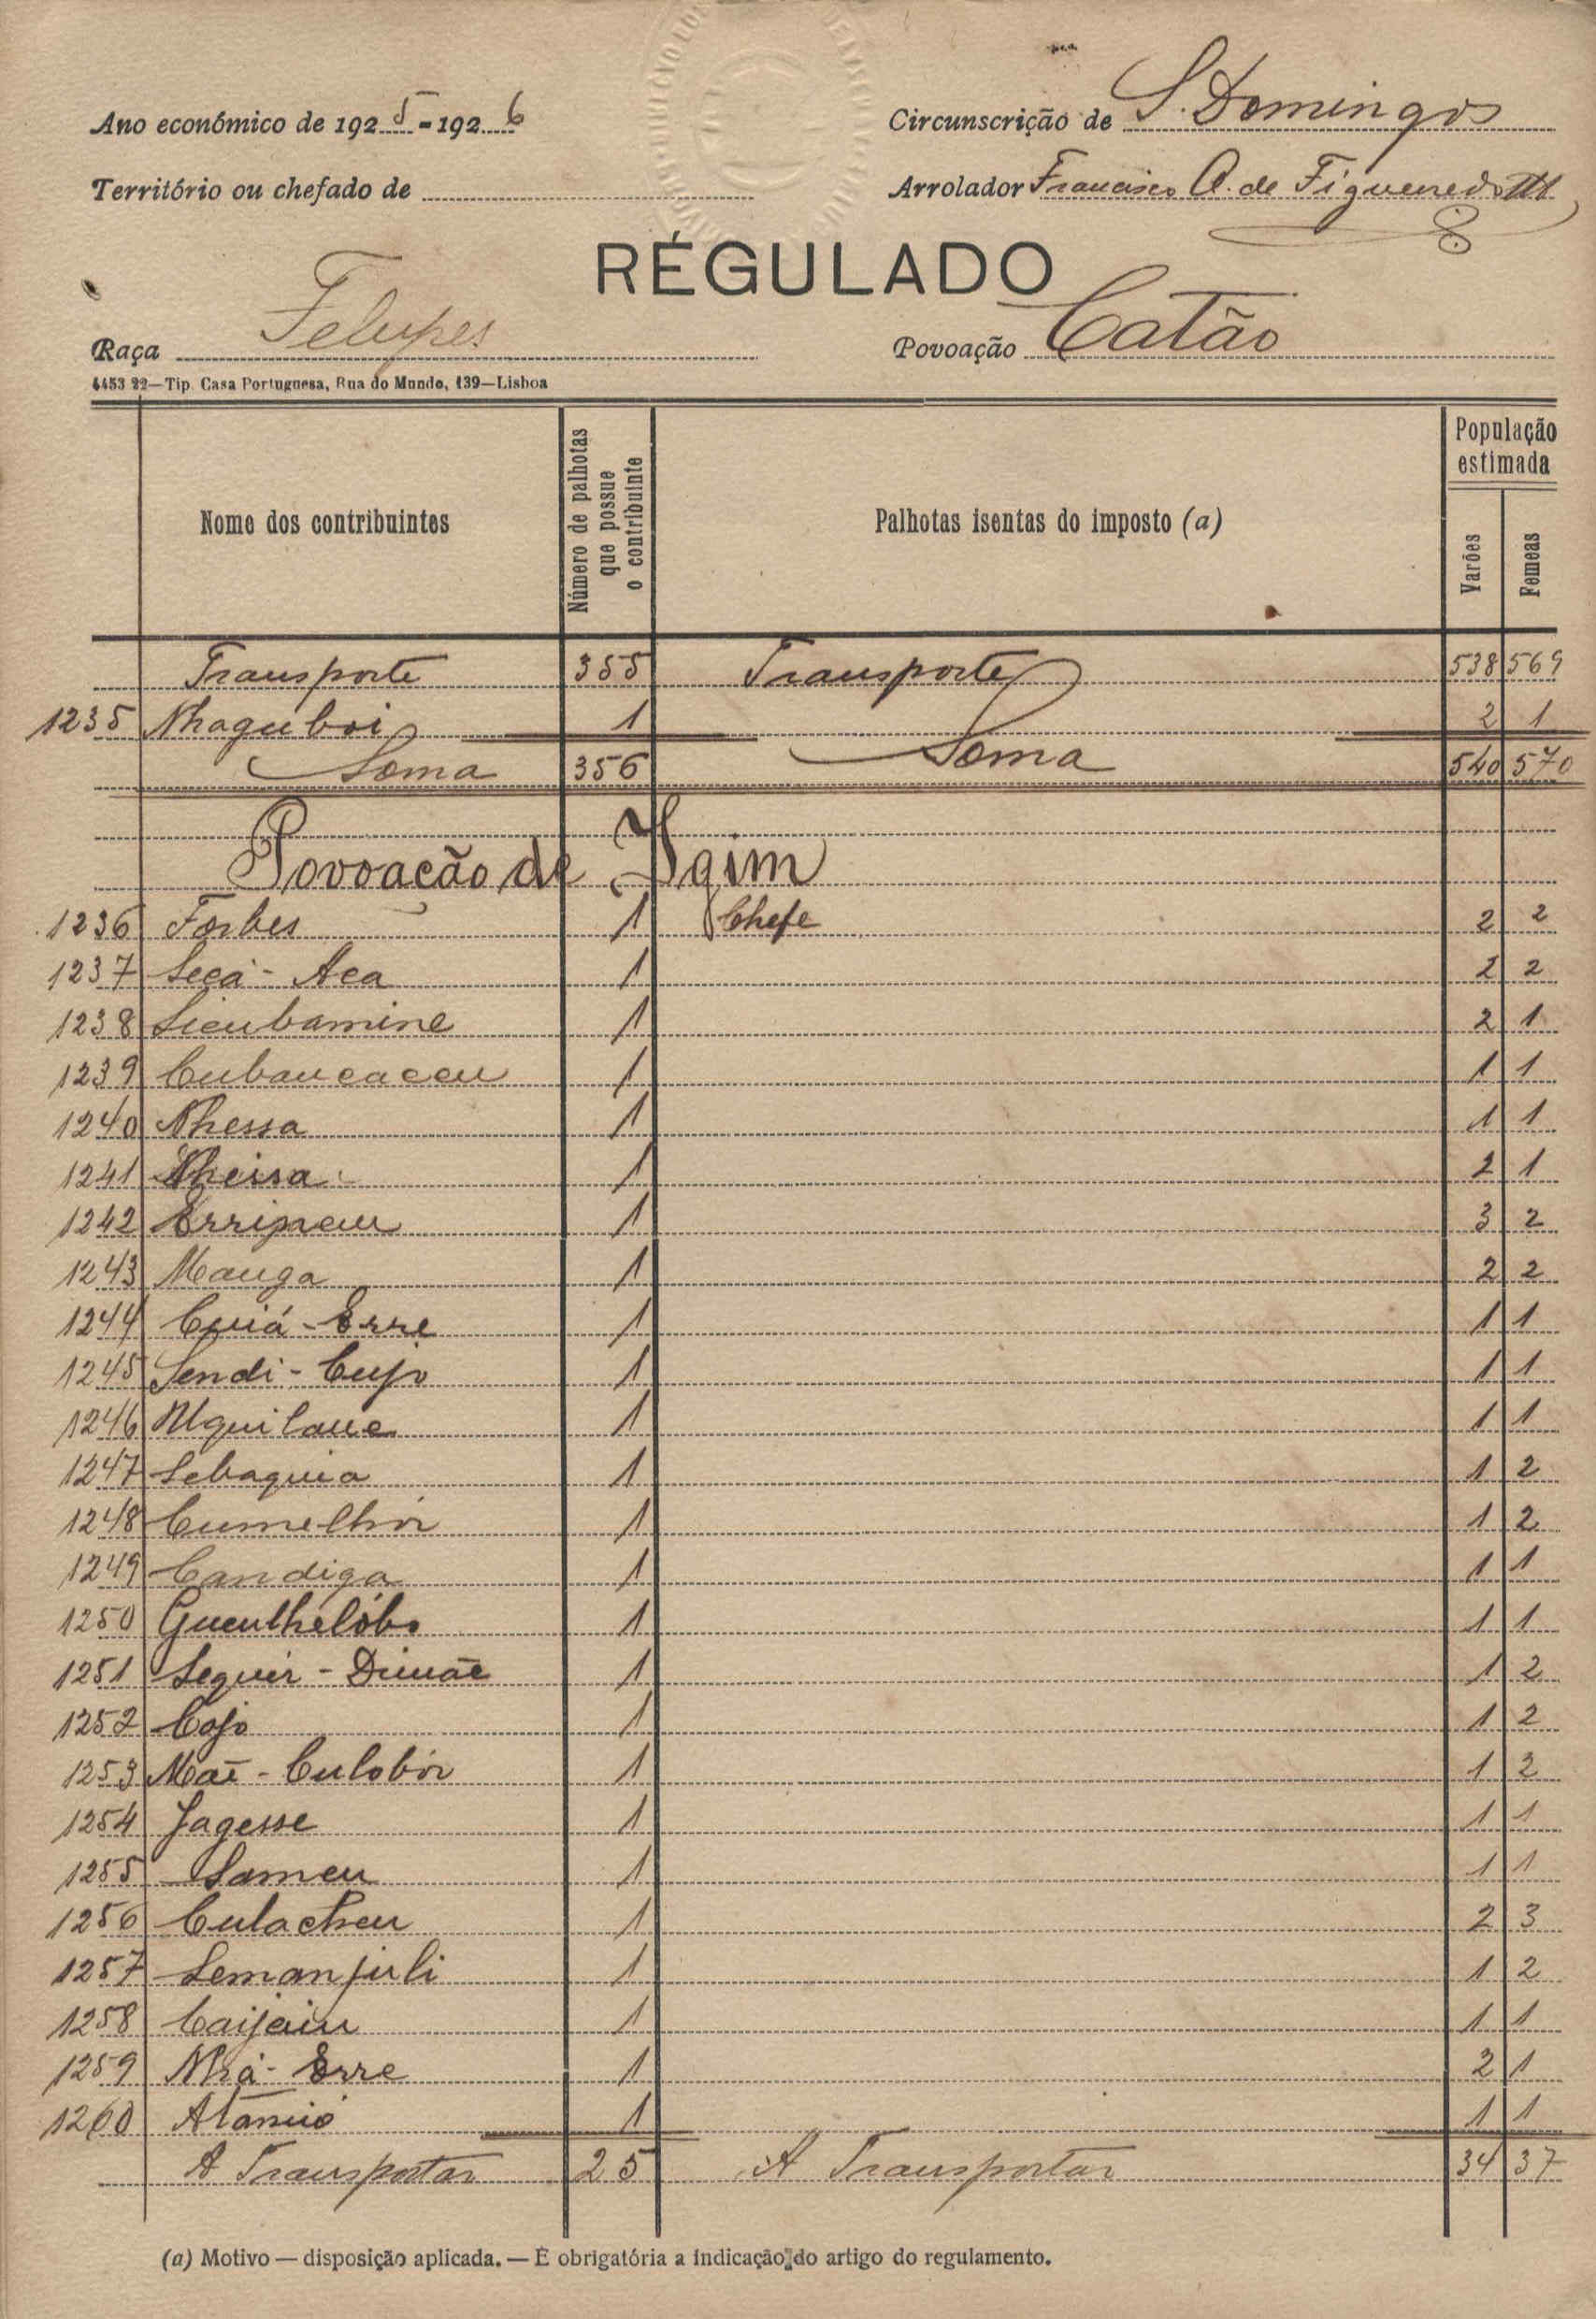 Ano económico de 1925-1926
Circunscrição de S. Domingos
Território ou chefado de
Arrolador Francisco A. de Figueiredo
RÉGULADO
Raça Felupes
Povoação Catão
4453 22—Tip. Casa Portuguesa, Rua do Mundo, 139—Lisboa
Nome dos contribuintes
Número de palhotas que possue o contribuinte
Palhotas isentas do imposto (a)
População estimada
Varões
Femeas
Transporte 355 Transporte 538 569
1235 Nhaguboi 1 2 1
Soma 356 Soma 540 570
Povoação de Igim
1236 Forbes 1 Chefe 2 2
1237 Seca-Aca 1 2 2
1238 Sicubamine 1 2 1
1239 Cubancaceu 1 1 1
1240 Nhessa 1 1 1
1241 Nheissa 1 2 1
1242 Erripaeu 1 3 2
1243 Manga 1 2 2
1244 Cuiá-Erre 1 1 1
1245 Sendi-Cujo 1 1 1
1246 1 1 1
1247 Sebaquia 1 1 2
1248 Cumelhór 1 1 2
1249 Candiga 1 1 1
1250 Gueulhelóbo 1 1 1
1251 Sequir- 1 1 2
1252 Cojo 1 1 2
1253 Maī-Culobór 1 1 2
1254 Jagesse 1 1 1
1255 Sameu 1 1 1
1256 Culacheu 1 2 3
1257 Semanjuli 1 1 2
1258 Caijaiu 1 1 1
1259 Nhá-Erre 1 2 1
1260 1 1 1
A Transportar 25 A Transportar 34 37
(a) Motivo — disposição aplicada. — É obrigatória a indicação do artigo do regulamento.